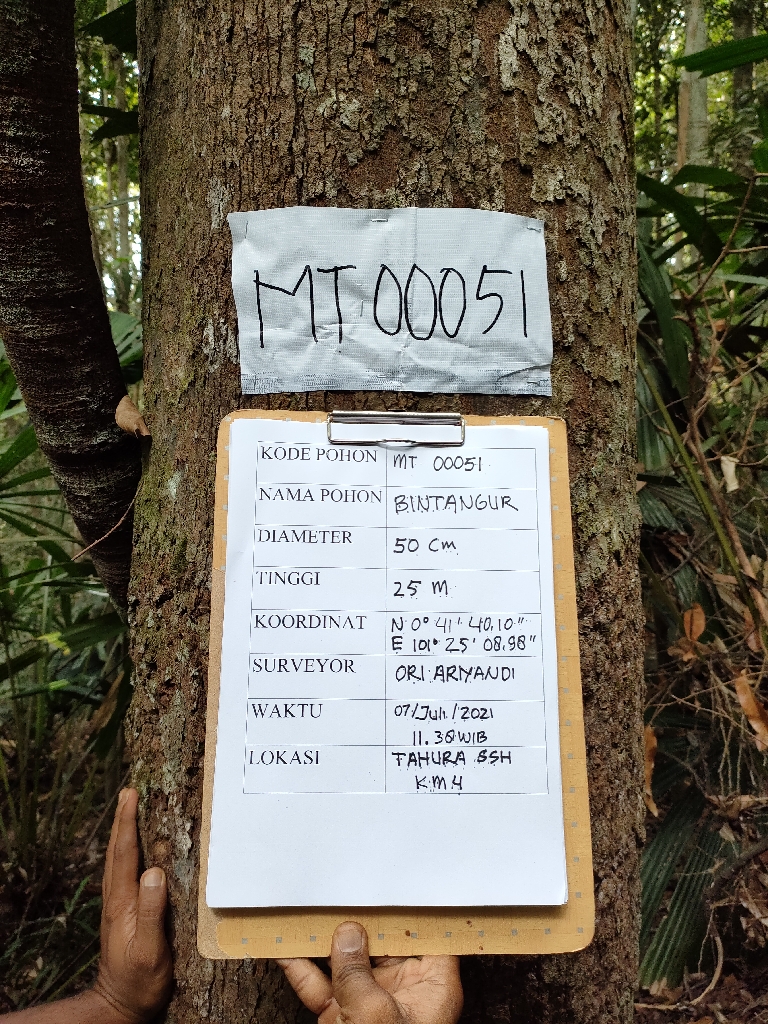 MT 00051
KODE POHON MT 00051
NAMA POHON BINTANGUR
DIAMETER 50 Cm
TINGGI 25 M
KOORDINAT N 0° 41' 40.10"
E 101° 25' 08.98"
SURVEYOR ORI ARIYANDI
WAKTU 07/Juli/2021
11.30 WIB
LOKASI TAHURA SSH
KM4